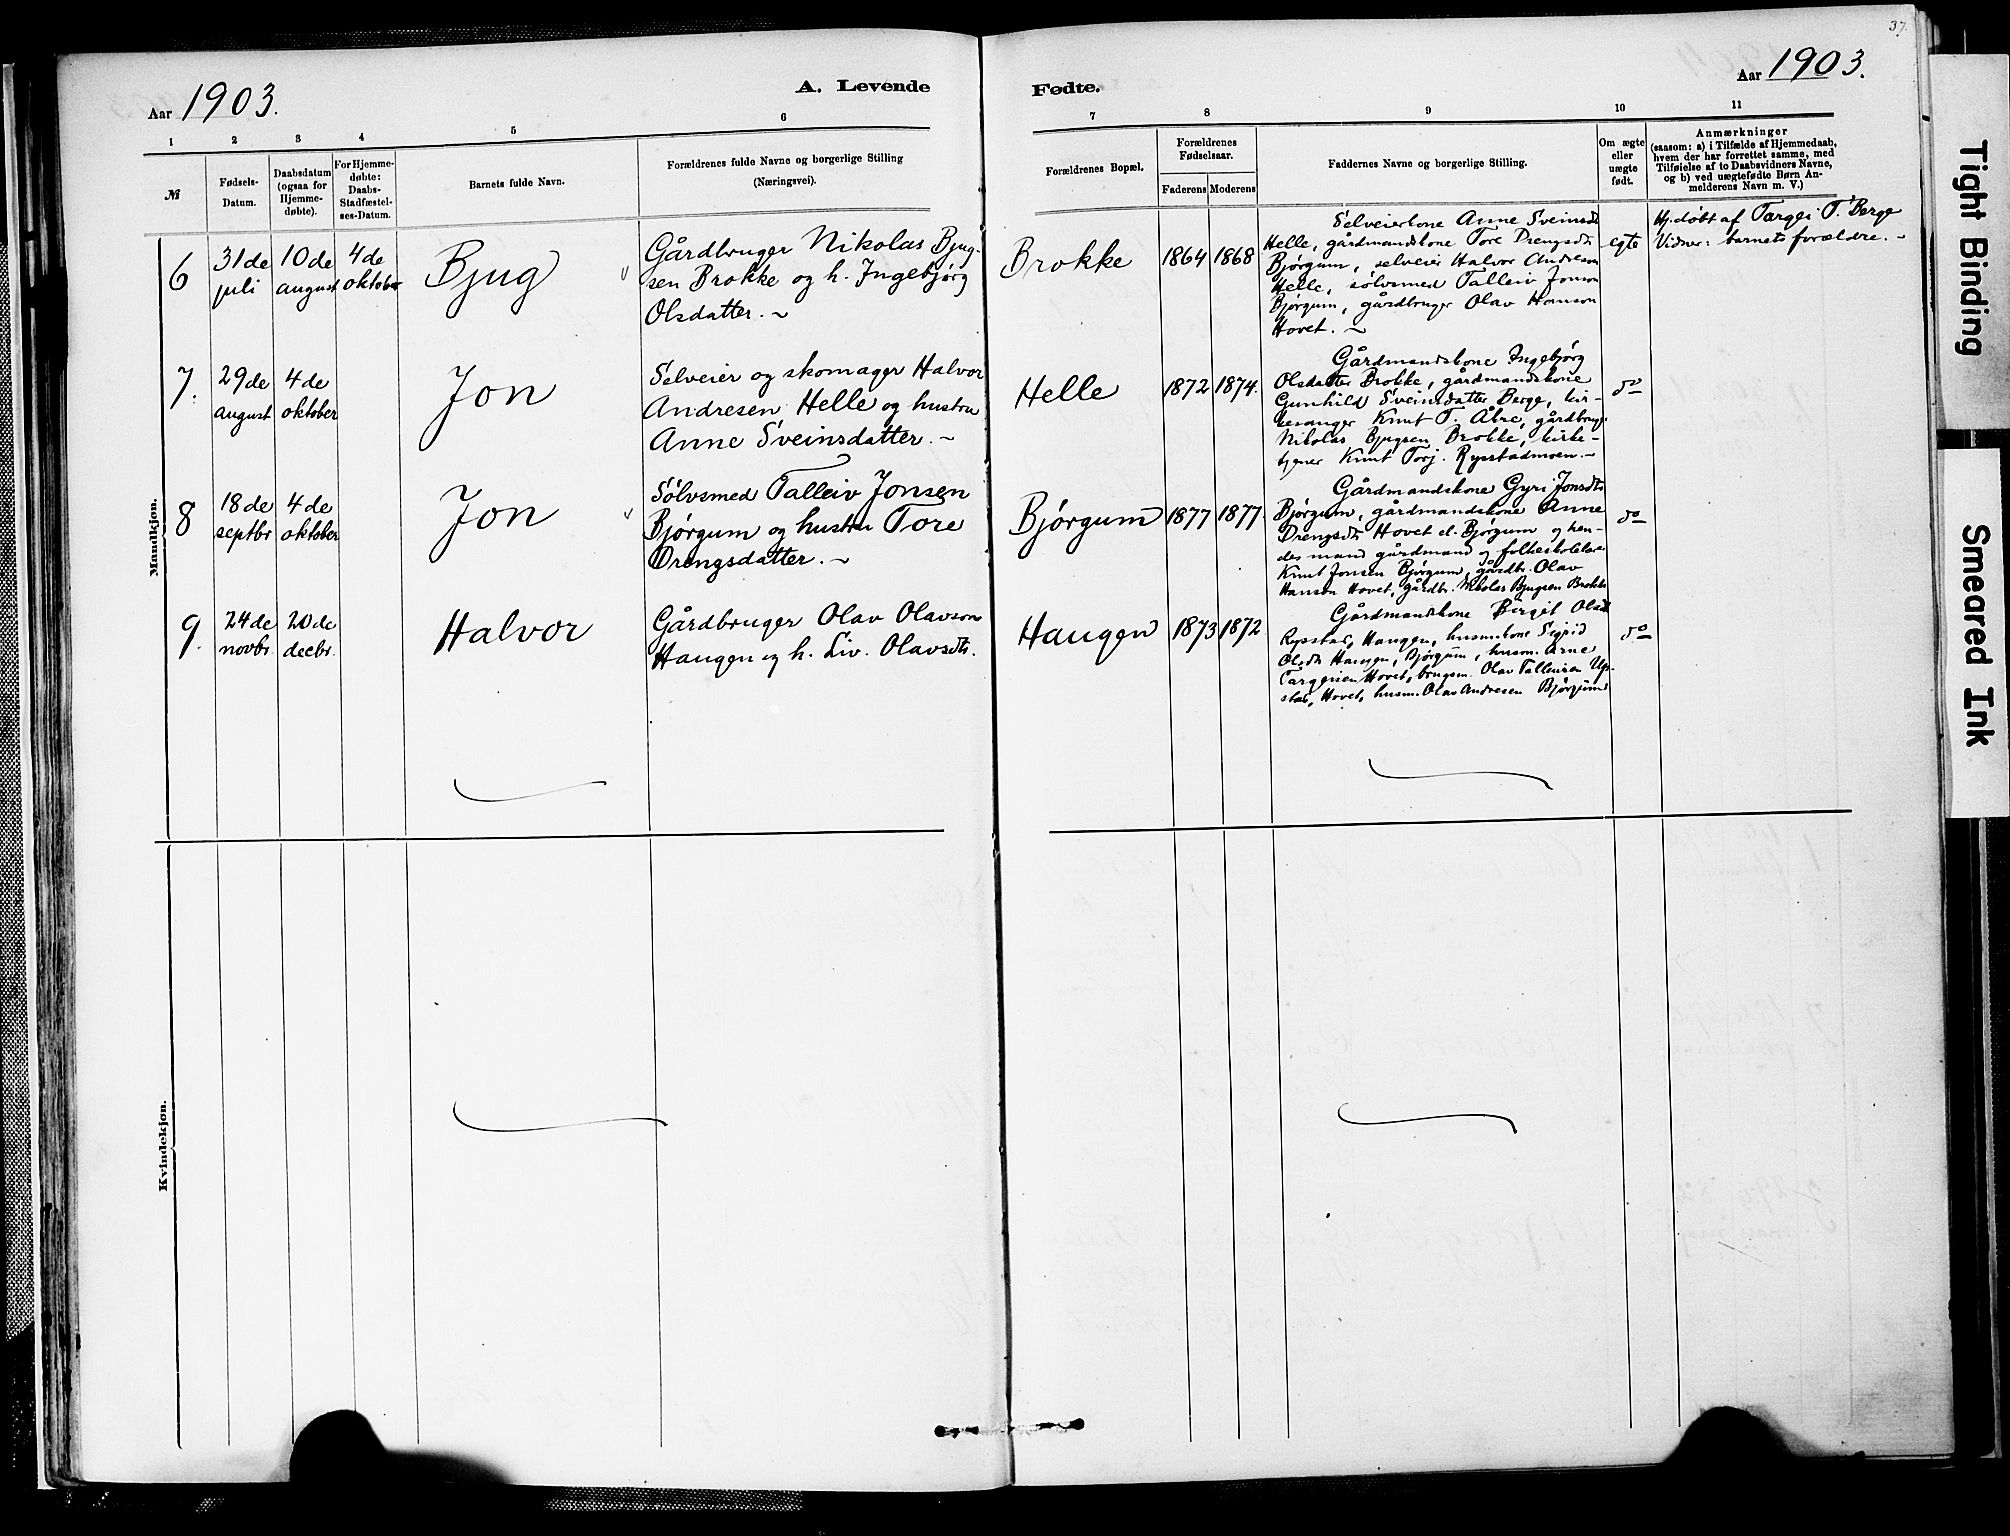 37.
Aar 1903.
A. Levende
Fødte.
Aar 1903.
1 2 3 4 5 6
7 8 9 10 11
№
Fødsels-
Datum.
Daabsdatum
(ogsaa for
Hjemme-
døbte).
For Hjemme-
døbte:
Daabs-
Stadfæstel-
ses-Datum.
Barnets fulde Navn.
Forældrenes fulde Navne og borgerlige Stilling
(Næringsvei).
Forældrenes Bopæl.
Forældrenes
Fødselsaar.
Faderens Moderens
Faddernes Navne og borgerlige Stilling.
Om ægte
eller
uægte
født.
Anmærkninger
(saasom: a) i Tilfælde af Hjemmedaab,
hvem der har forrettet samme, med
Tilføielse af to Daabsvidners Navne,
og b) ved uægtefødte Børn An-
melderens Navn m. V.)
Mandkjøn.
6
31de
juli
10de
august
4de
oktober
Bjug
Gårdbruger Nikolas Bjug-
sen Brokke og h. Ingebjørg
Olsdatter. ~
Brokke
1864 1868
Selveierkone Anne Sveinsdt
Helle, gårdmandskone Tore Drengsdt
Bjørgum, selveier Halvor Andresen
Helle, sølvsmed Talleiv Jonson
Bjørgum, gårdbruger Olav Hanson
Hovet. ~
egte
Hj.døbt af Targei T. Berge
Vidner: barnets forældre. ~
7.
29de
august
4de
oktober
Jon
Selveier og skomager Halvor
Andresen Helle og hustru
Anne Sveinsdatter. ~
Helle
1872 1874.
Gårdmandskone Ingebjørg
Olsdatter Brokke, gårdmandskone
Gunhild Sveinsdatter Berge, kir-
kesanger Knut T. Åkre, gårdbrug.
Nikolas Bjugsen Brokke, kirke-
tjener Knut Torj. Rysstadmoen. ~
do
8
18de
septbr
4de
oktober
Jon
Sølvsmed Talleiv Jonsen
Bjørgum og hustru Tore
Drengsdatter. ~
Bjørgum
1877 1877.
Gårdmandskone Gyri Jonsdt
Bjørgum, gårdmandskone Anne
Drengsdt Hovet el. Bjørgum og hen-
des mand gårdmand og folkeskolelær.
Knut Jonsen Bjørgum, gårdbr. Olav
Hanson Hovet, gårdbr. Nikolas Bjugsen Brokke
do
9.
24de
novbr.
20de
decbr.
Halvor
Gårdbruger Olav Olavson
Haugen og h. Liv. Olavsdt.
Haugen
1873 1872
Gårdmandskone Birgit Olsdt
Rysstad, Haugen, husm.kone Sigrid
Olsdt Haugen, Bjørgum, husm. Arne
Targeisen Hovet, brugsm. Olav Talleivsen Up-
stad, Hovet, husm. Olav Andresen Bjørgum
do
Kvindekjøn.
Tight Binding
Smeared Ink